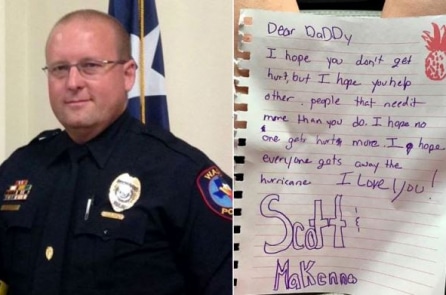 Dear DaDDy
I hope you don't get
hurt, but I hope you help
other people that need it
more than you do. I hope no
one gets hurt more. I hope
everyone gets away the
hurricane. I Love You!
Scott &
MaKenna